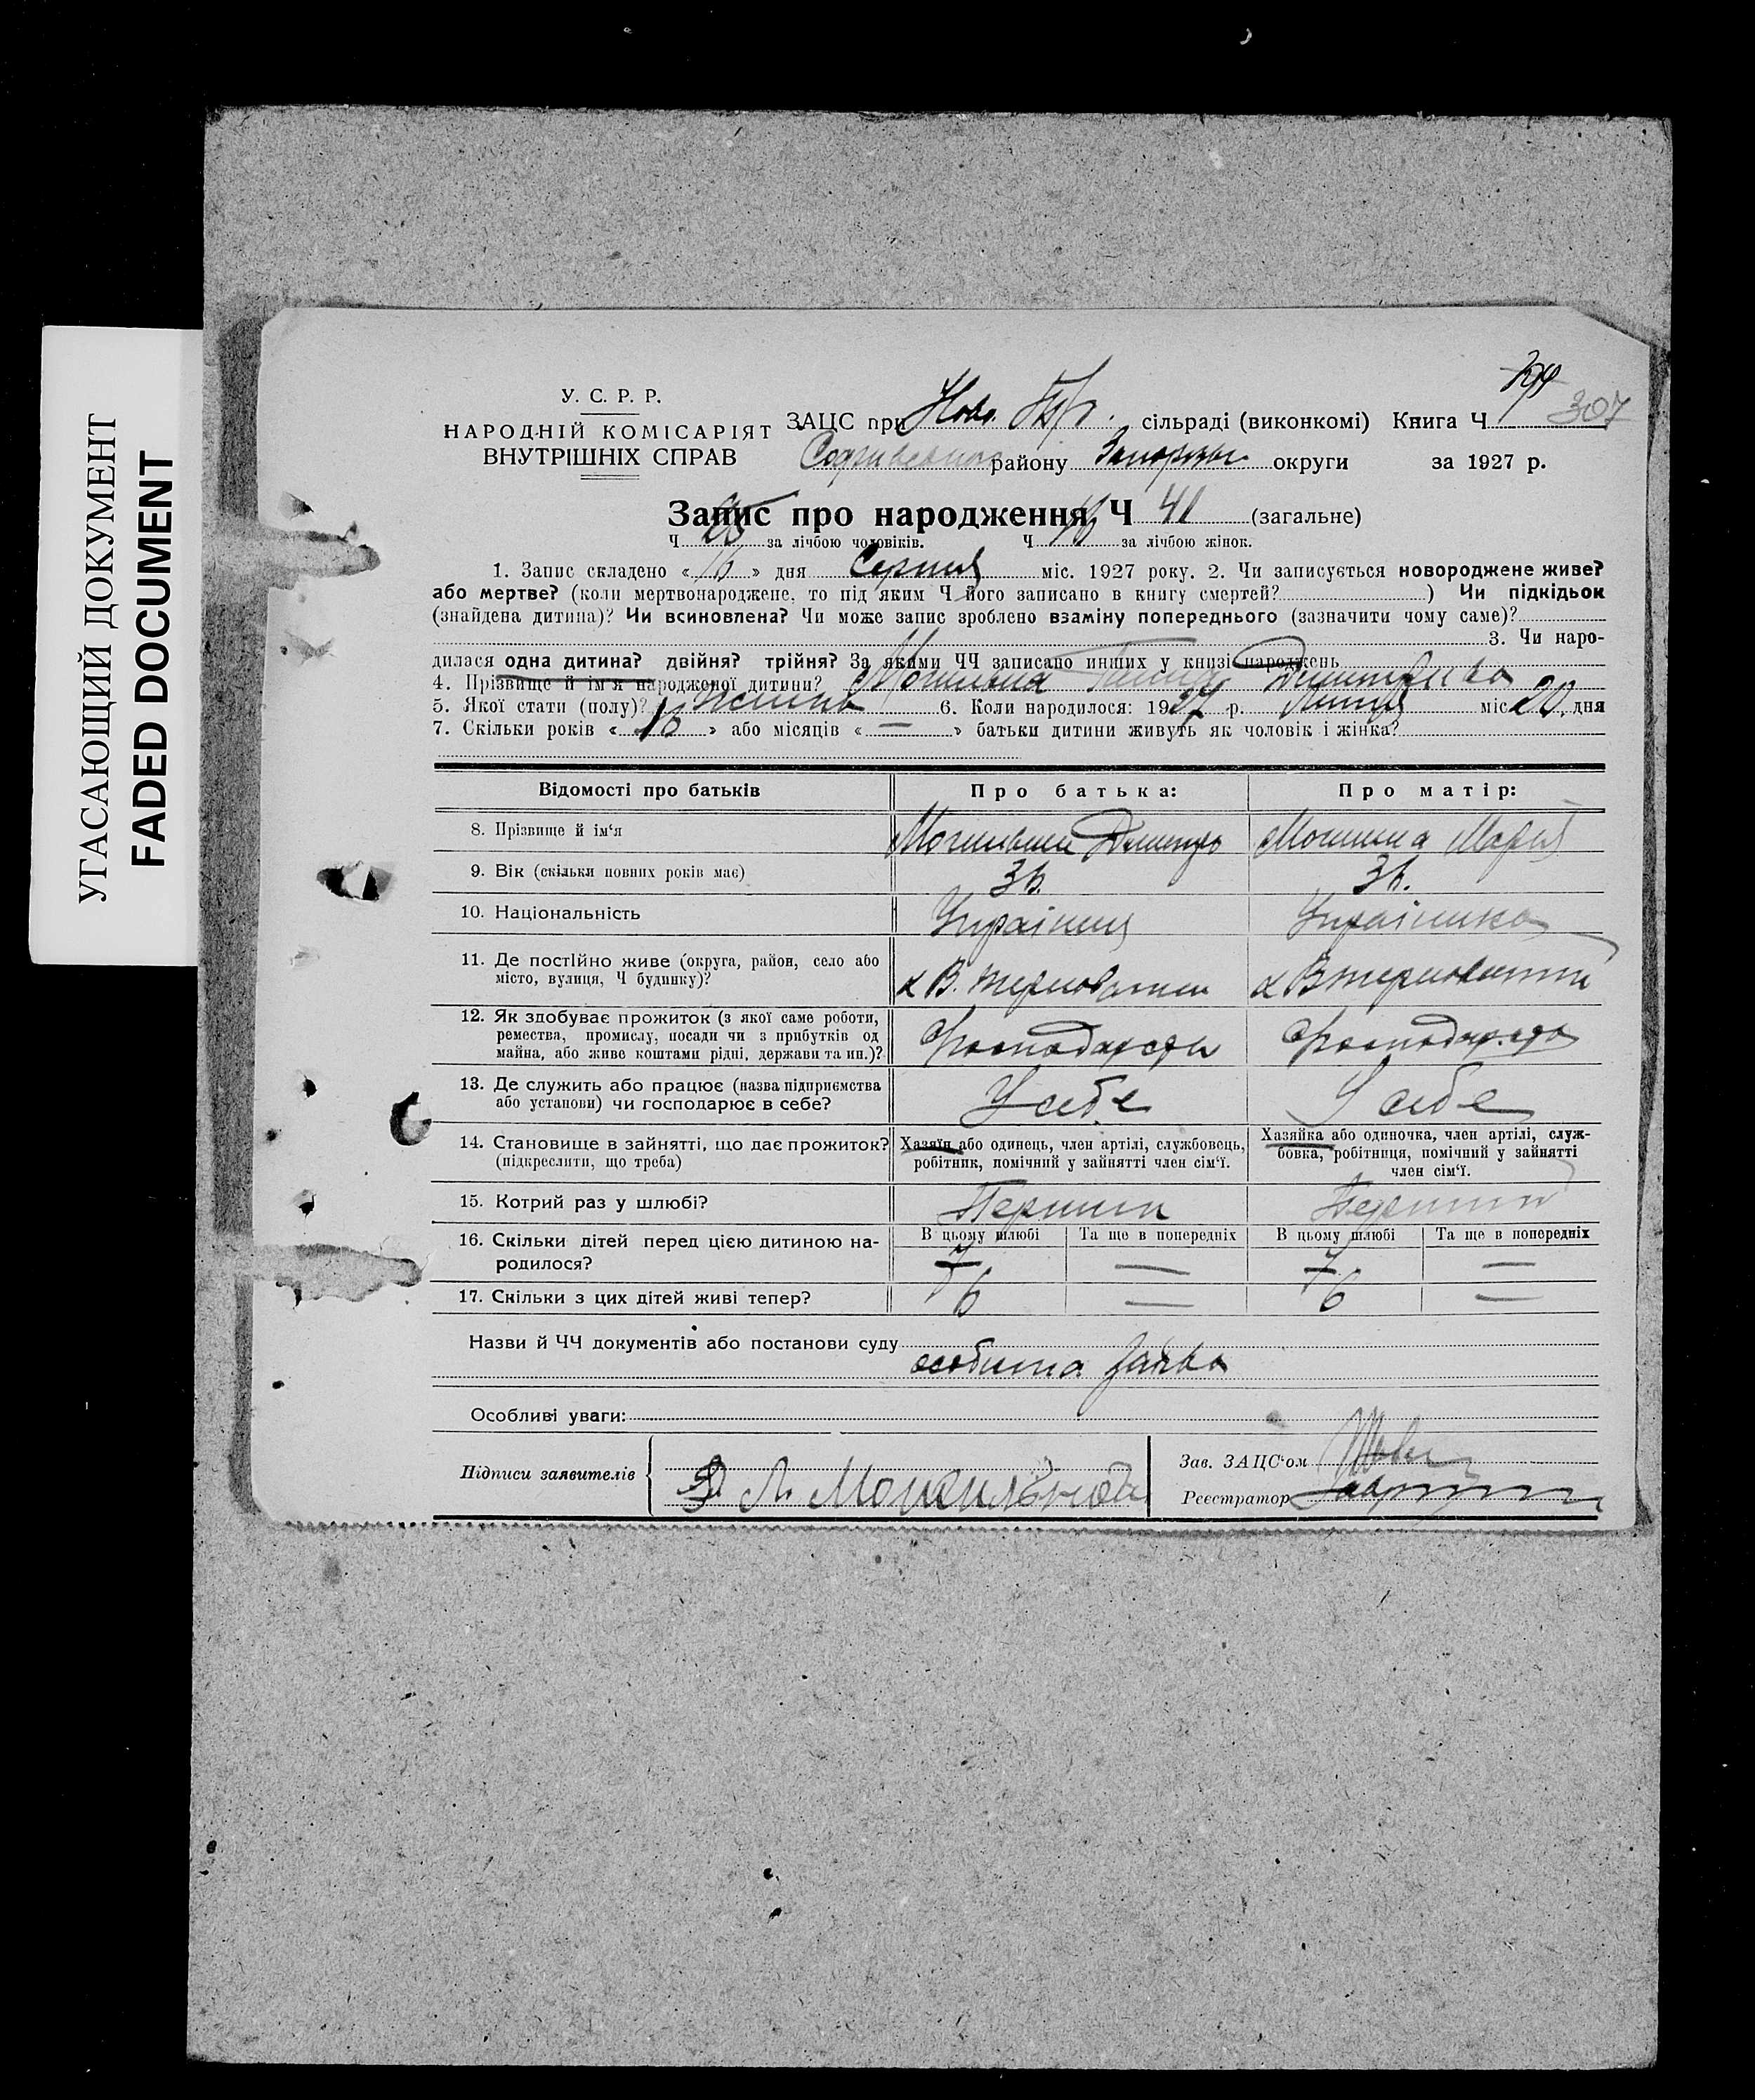 УГАСАЮЩИЙ ДОКУМЕНТ
FADED DOCUMENT
У. С. Р. Р.
НАРОДНІЙ КОМІСАРІЯТ
ВНУТРІШНІХ СПРАВ
307
ЗАЦС при Ново сільраді (виконкомі) Книга Ч
району округи за 1927 р.
Запис про народження Ч 41 (загальне)
Ч 25 за лічбою чоловіків. Ч 16 за лічбою жінок.
1. Запис складено « 16 » дня Серпня міс. 1927 року. 2. Чи записується новороджене живе?
або мертве? (коли мертвонароджене, то під яким Ч його записано в книгу смертей? ) Чи підкідьок
(знайдена дитина)? Чи всиновлена? Чи може запис зроблено взаміну попереднього (зазначити чому саме)?
3. Чи наро-
дилася одна дитина? двійня? трійня? За якими ЧЧ записано инших у книзі народжень
4. Прізвище й ім'я народженої дитини? Могильна Ганна Дмитрівна
5. Якої стати (полу)? 6. Коли народилося: 1927 р. Липця міс. 20 дня
7. Скільки років « 16 » або місяців « — » батьки дитини живуть як чоловік і жінка?
Відомості про батьків
Про батька:
Про матір:
8. Прізвище й ім'я Дмитро Марія
9. Вік (скільки повних років має) 36. 36.
10. Національність Українець Українка
11. Де постійно живе (округа, район, село або
місто, вулиця, Ч будинку)?
12. Як здобуває прожиток (з якої саме роботи,
ремества, промислу, посади чи з прибутків од
майна, або живе коштами рідні, держави та ин.)?
13. Де служить або працює (назва підприємства
або установи) чи господарює в себе? У себе У себе
14. Становище в зайнятті, що дає прожиток?
(підкреслити, що треба)
Хазяїн або одинець, член артілі, службовець,
робітник, помічний у зайнятті член сім'ї.
Хазяйка або одиночка, член артілі, служ-
бовка, робітниця, помічний у зайнятті
член сім'ї.
15. Котрий раз у шлюбі? Перший Перший
16. Скільки дітей перед цією дитиною на-
родилося?
В цьому шлюбі Та ще в попередніх В цьому шлюбі Та ще в попередніх
7 — 7 —
17. Скільки з цих дітей живі тепер? 6 — 6 —
Назви й ЧЧ документів або постанови суду
особиста заява
Особливі уваги:
Підписи заявителів
Зав. ЗАЦС'ом
Реєстратор